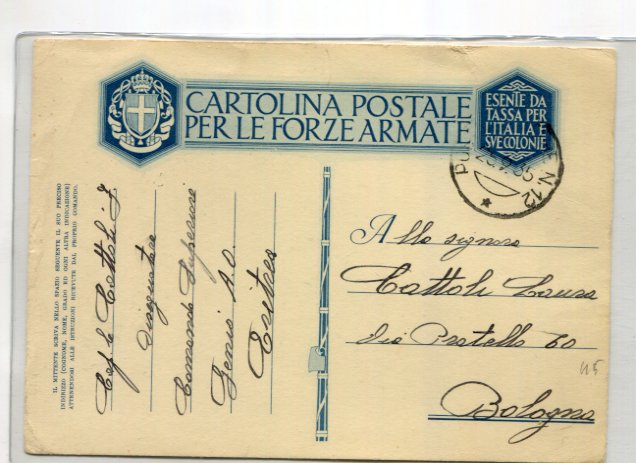 CARTOLINA POSTALE
PER LE FORZE ARMATE
ESENTE DA
TASSA PER
L'ITALIA E
SVE COLONIE
E N. 12
35
IL MITTENTE SCRIVA NELLO SPAZIO SEGUENTE IL SUO PRECISO
INDIRIZZO (COGNOME, NOME, GRADO ED OGNI ALTRA INDICAZIONE)
ATTENENDOSI ALLE ISTRUZIONI RICEVUTE DAL PROPRIO COMANDO.
Cattoli
Comando Superiore
Genio A.O.
Eritrea
Alla signora
Cattoli Laura
Via Pratello 60
Bologna